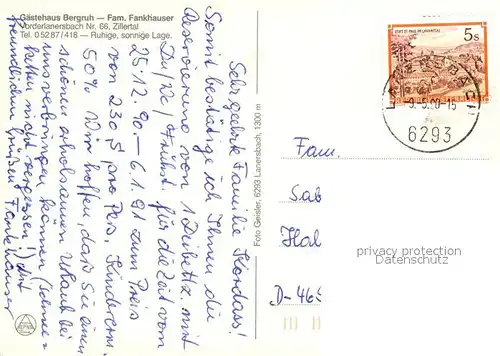 Gästehaus Bergruh — Fam. Fankhauser
Vorderlanersbach Nr. 66, Zillertal
Tel. 0 52 87 / 418 — Ruhige, sonnige Lage.
Sehr geehrte Familie
Somit bestätige ich Ihnen die
Reservierung von 1 Dreibettz. mit
Du/Wc/Frühst. für die Zeit vom
25.12.90 - 6.1.91 zum Preis
von 230 S pro Pers., Kinderm.
50% Wir hoffen, daß Sie einen
schönen erholsamen Urlaub bei
uns verbringen können (
bitte nicht vergessen!) Mit
freundlichen Grüßen Fankhauser
Foto Geisler, 6293 Lanersbach, 1300 m
STIFT ST. PAUL IM LAVANTTAL
5 S
-9.-5.90-15
6293
Fam.
Sab
Hal
D-46
privacy protection
watermark